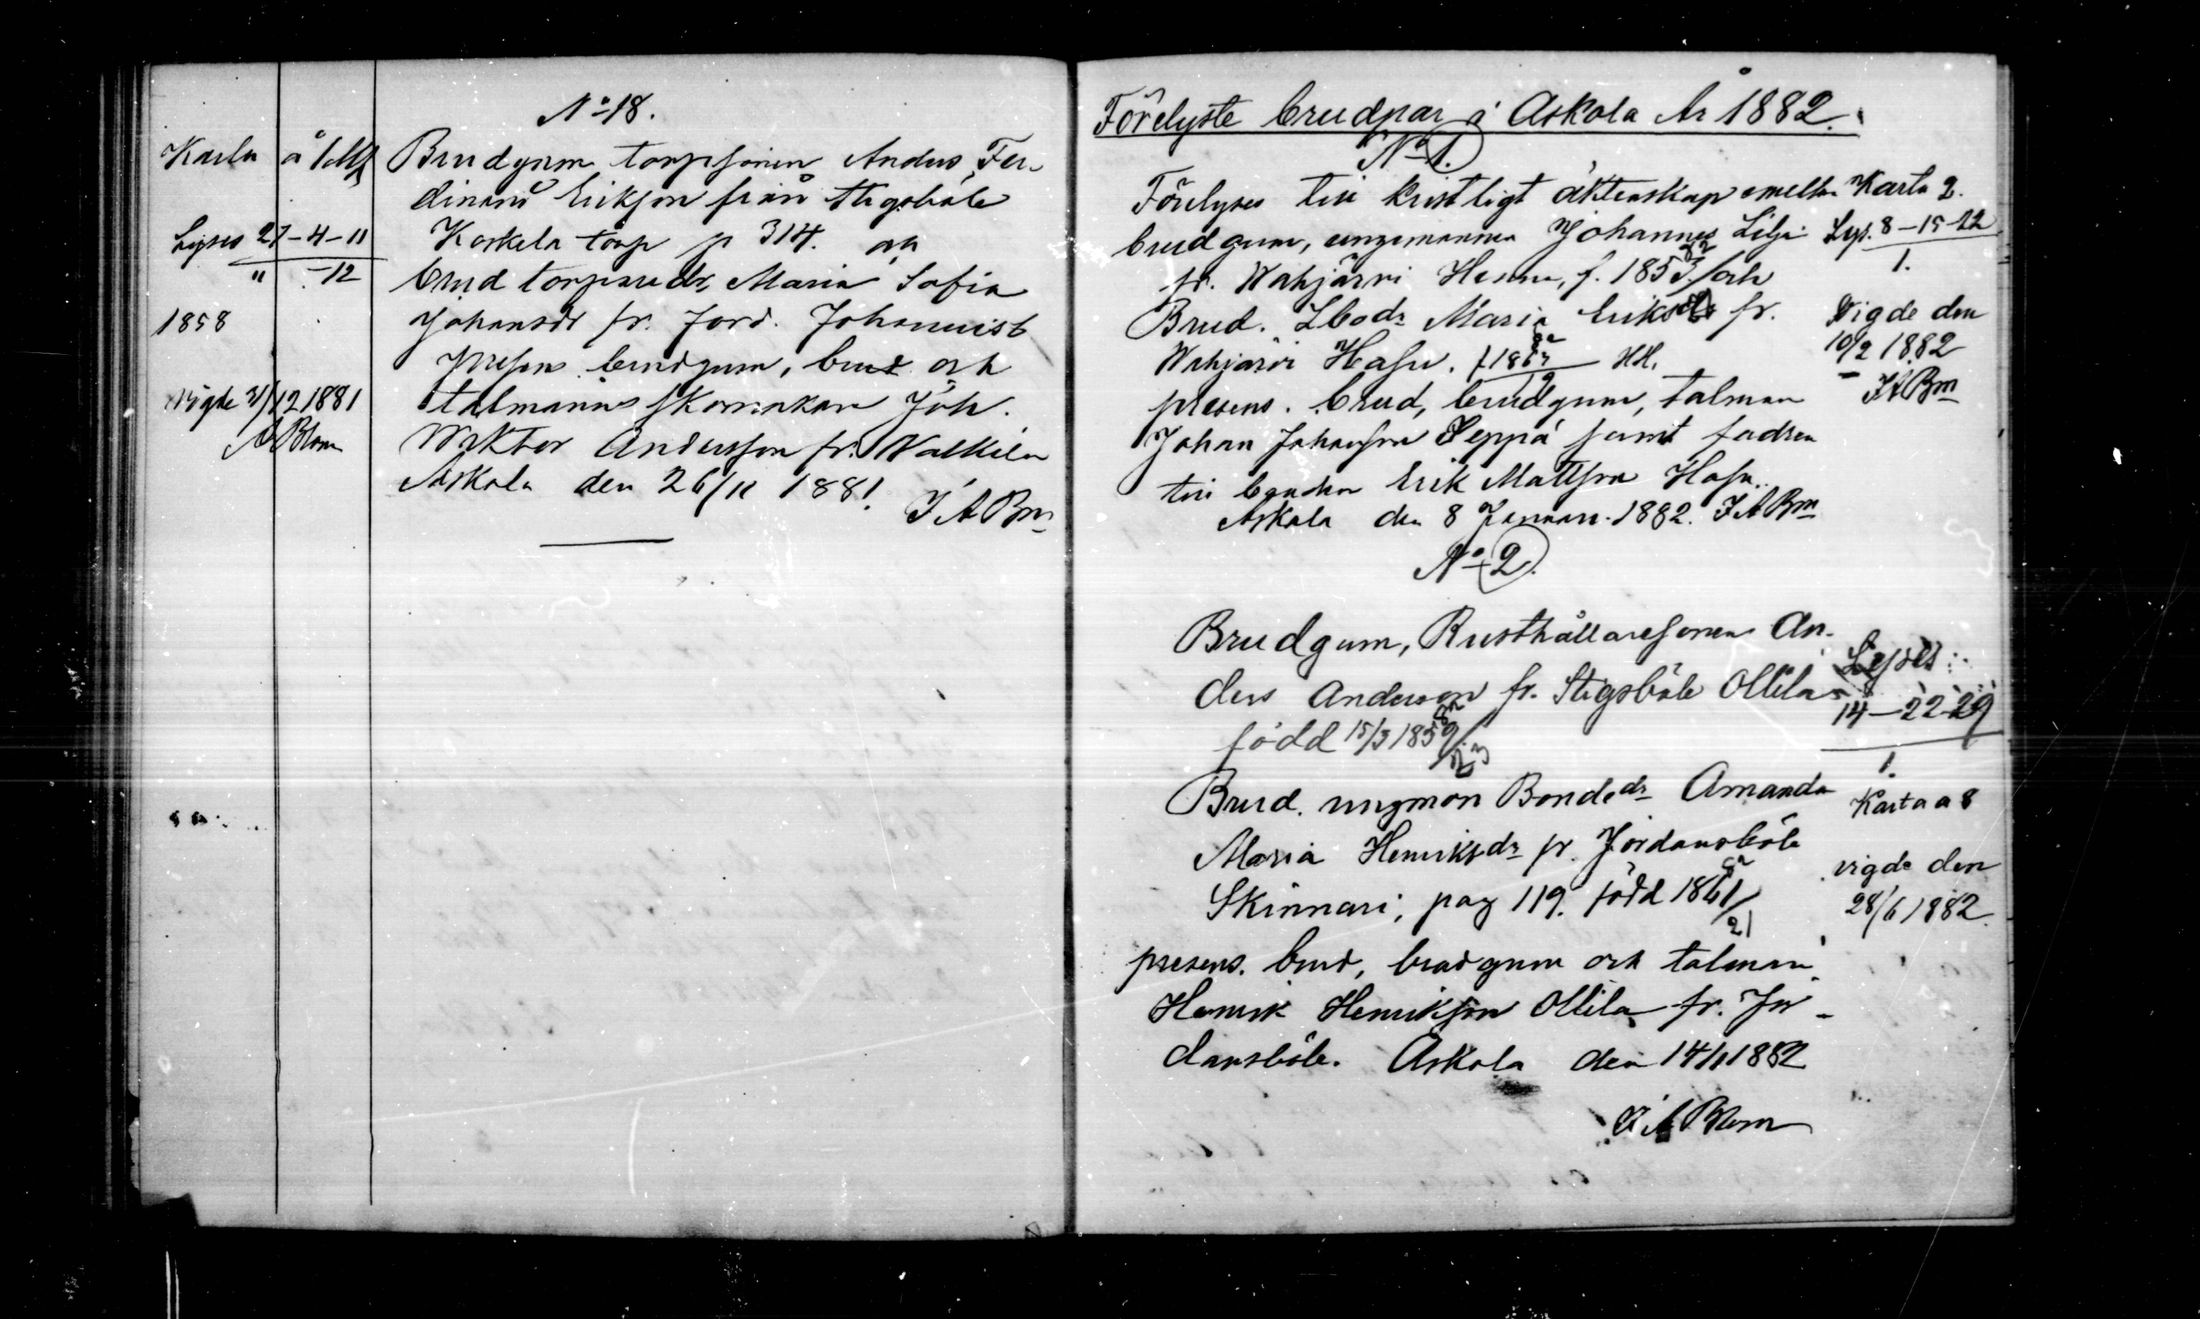 No 18.
Karta å 1 Mk
Brudgum torpssonen Anders Fer-
dinand Erikson från Stigsböle
Lyses 27-4-11
" -12
Koskela torp p 314. och
brud torparedr Maria Sofia
1858
Johansdr fr. Jord. Johanuist
presens brudgum, brud och
vigde 31/12 1881
A Blom
talmannen skomakare Joh.
Wiktor Andersson fr. Walkila
Askola den 26/11 1881.
I A Bm
Förelyste brudpar i Askola År 1882.
No 1.
Förelyses till kristligt äktenskap emellan
Karta 2.
brudgum, ungemannen Johannes Lilja
Lys. 8-15-22
1.
fr. Wahjärvi Henna, f. 1853 och
Brud. Lbodr Maria Eriksdr fr.
Wigde den
10/2 1882
I A Bm
Wahjärvi Hasu. f 1863 HH.
presens. brud, brudgum, talman
Johan Johansson Seppä samt fadren
till bruden Erik Mattsson Hasu.
Askola den 8 Januari 1882. I A Bm
No 2.
Brudgum, Rusthållaresonen An-
ders Anderson fr. Stigsböle Ollila
Lyses:
14-22-29
1.
född 15/3 1859
23
Brud. ungmön Bondedr Amanda
Karta a 8
Maria Henriksdr fr. Jordansböle
vigde den
28/6 1882.
Skinnari, pag 119. född 1861
21
presens. brud, brudgum och talman
Henrik Henrikson Ollila fr. Jor-
dansböle. Askola den 14/1 1882
I A Blom